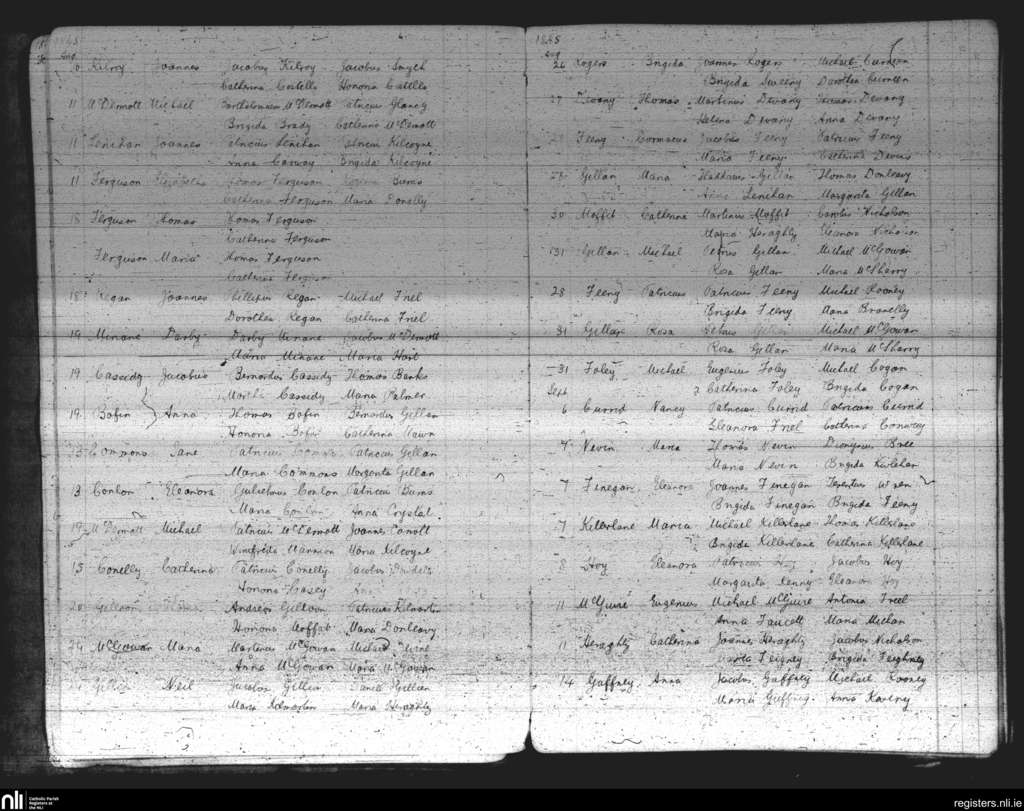 1845
Aug
10 Kilroy Joannes Jacobus Kilroy Jacobus Smyth
Catherina Costello Honoria Costello
11 McDermott Michael Bartholomeus McDermott Patricius Glancy
Brigida Brady Catherina McDermott
11 Lenihan Joannes Patricius Lenihan Patricius Kilcoyne
Anna Conway Brigida Kilcoyne
11 Ferguson Thomas Ferguson Burns
Catherina Ferguson Maria Conelly
18 Ferguson Thomas Thomas Ferguson
Catherina Ferguson
Ferguson Maria Thomas Ferguson
Catherina Ferguson
18 Regan Joannes Phillipus Regan Michael Friel
Dorothea Regan Catherina Friel
19 Minane Darby Darby Minane Jacobus McDermott
Maria Minane Maria Hart
19 Cassidy Jacobus Bernardus Cassidy Thomas Banks
Martha Cassidy Maria Palmer
19 Bofin Anna Thomas Bofin Bernardus Gillan
Honoria Bofin Catherina
Commons Jane Patricius Commons Patricius Gillan
Maria Commons Margarita Gillan
13 Conlon Eleanora Gulielmus Conlon Patricius Burns
Maria Conlon Anna Crystal
19 McDermott Michael Patricius McDermott Joannes
Winifreda Maria Kilcoyne
15 Conelly Catherina Patricius Conelly Jacobus
Honoria Casey
20 Andreas Patricius
Honoria Moffat Maria Donleavy
24 McGowan Maria Martinus McGowan Michael
Anna McGowan Maria McGowan
Gillen Neil Jacobus Gillen Gillen
Maria Maria Heraghty
1845
Aug
26 Rogers Brigida Joannes Rogers Michael
Brigida Sweeny Dorothea
27 Devany Thomas Martinus Devany Thomas Devany
Helena Devany Anna Devany
Feeny Cormacus Jacobus Feeny Patricius Feeny
Maria Feeny Catherina
Gillan Maria Gillan Thomas Donleavy
Anna Lenihan Margarita Gillan
30 Moffit Catherina Martinus Moffit Carolus Nicholson
Maria Heraghty Eleanora Nicholson
31 Gillan Michael Petrus Gillan Michael McGowan
Rosa Gillan Maria McSharry
28 Feeny Patricius Patricius Feeny Michael Rooney
Brigida Feeny Anna Branelly
31 Gillan Rosa Petrus Gillan Michael McGowan
Rosa Gillan Maria McSharry
31 Foley Michael Eugenius Foley Michael Cogan
Sept Catherina Foley Brigida Cogan
6 Currid Nancy Patricius Currid Patricius Currid
Eleanora Friel Catherina Conway
4 Nevin Maria Thomas Nevin Dionysius Bree
Maria Nevin Brigida
7 Finegan Eleanora Joannes Finegan Terentius Wren
Brigida Finegan Brigida Feeny
7 Killerlane Maria Michael Killerlane Thomas Killerlane
Brigida Killerlane Catherina Killerlane
8 Hoy Eleanora Patricius Hoy Jacobus Hoy
Margarita Kenny Eleanora Hoy
11 McGuire Eugenius Michael McGuire Antonia Freel
Anna Faucett Maria
11 Heraghty Catherina Joannes Heraghty Jacobus Nicholson
Maria Feigney Brigida Feighney
14 Gaffney Anna Jacobus Gaffney Michael Rooney
Maria Gaffney Anna Kaveny
nli
Catholic Parish
Registers at
the NLI
registers.nli.ie